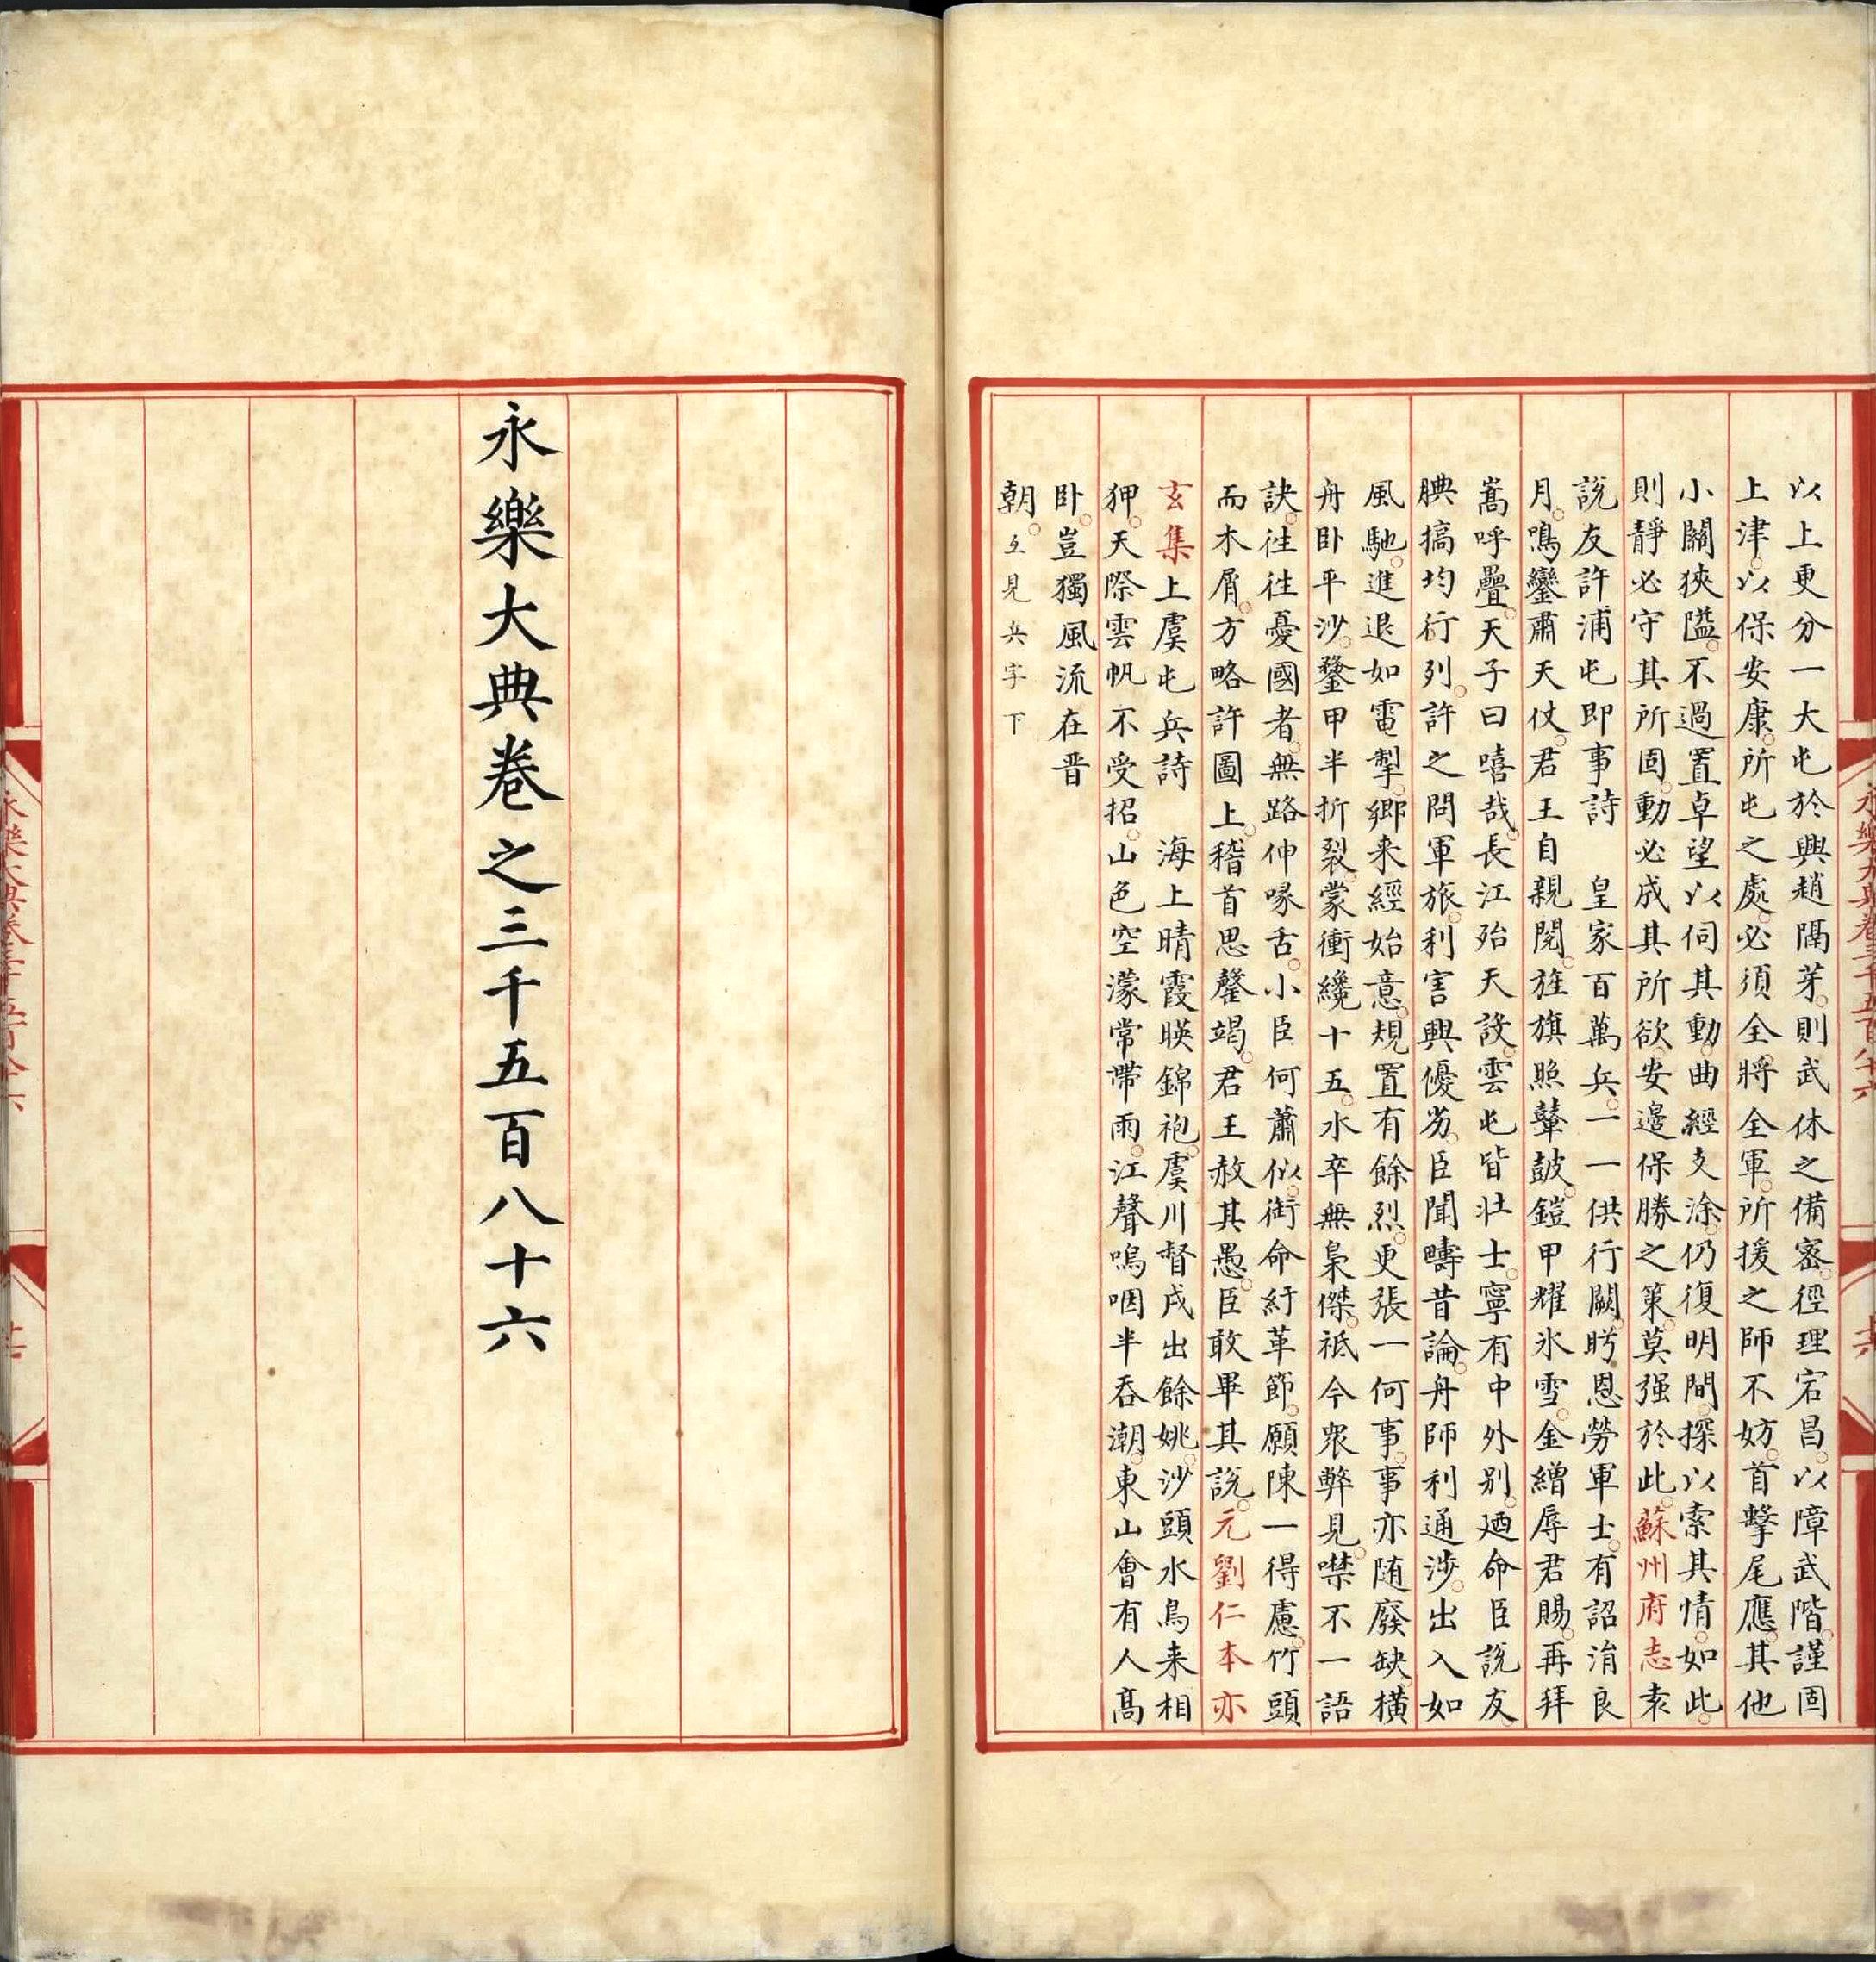 以上更分一大屯於興趙隔芽則武休之備密徑理宕昌以障武階謹固
上津以保安康所屯之處必須全將全軍所援之師不妨首擊尾應其他
小關狹隘不過置卓望以伺其動曲經支涂仍復明間探以索其情如此
則靜必守其所固動必成其所欲安邊保勝之策莫强於此蘇州府志袁
說友許浦屯即事詩 皇家百萬兵一一供行闕眄恩勞軍士有詔涓良
月鳴鑾肅天仗君王自親閱旌旗照鼙鼓鎧甲耀氷雪金繒辱君賜再拜
嵩呼疊天子曰嘻哉長江殆天設雲屯皆壯士寧有中外别廼命臣說友
腆犒均行列許之問軍旅利害興優劣臣聞疇昔論舟師利通涉出入如
風馳進退如電掣鄉来經始意規置有餘烈更張一何事事亦随廢缺横
舟卧平沙鍪甲半折裂蒙衝纔十五水卒無梟傑祗今衆弊見噤不一語
訣往往憂國者無路伸喙舌小臣何蕭似銜命紆革節願陳一得慮竹頭
而木屑方略許圖上稽首思罄竭君王赦其愚臣敢畢其說元劉仁本亦
玄集上虞屯兵詩 海上晴霞暎錦袍虞川督戍出餘姚沙頭水鳥来相
狎天際雲帆不受招山色空濛常帶雨江聲嗚咽半吞潮東山會有人髙
卧豈獨風流在晋
朝互見兵字下
永樂大典卷之三千五百八十六